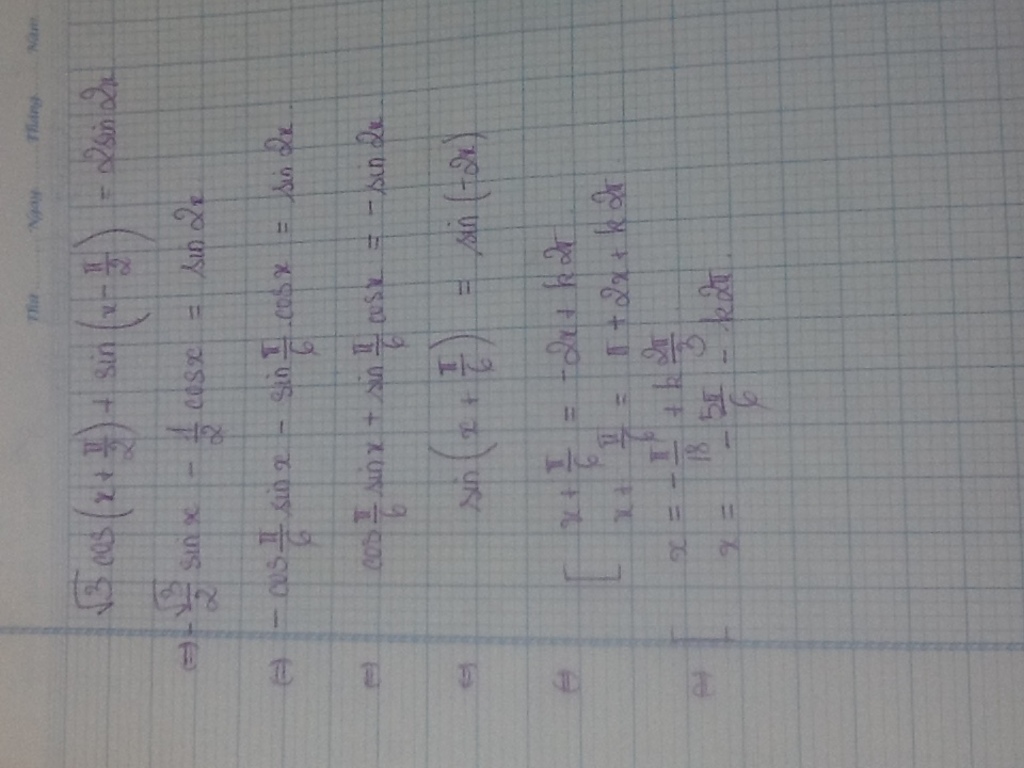 Thứ Ngày Tháng Năm
√3 cos(x + π/2) + sin(x - π/2) = 2sin2x
⇔ -√3/2 sinx - 1/2 cosx = sin2x
⇔ - cos π/6 sinx - sin π/6 . cosx = sin2x
⇔ cos π/6 sinx + sin π/6 cosx = - sin2x
⇔ sin(x + π/6) = sin(-2x)
⇔ [ x + π/6 = -2x + k2π
x + π/6 = π + 2x + k2π
⇔ [ x = -π/18 + k 2π/3
x = - 5π/6 - k2π